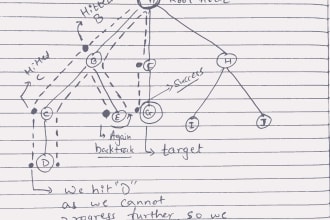 Root node
Hitted
B
Hitted
C
B
F
H
Success
C
E
G
I
J
Again
backtrack
target
D
we hit "D"
as we cannot
progress further so we